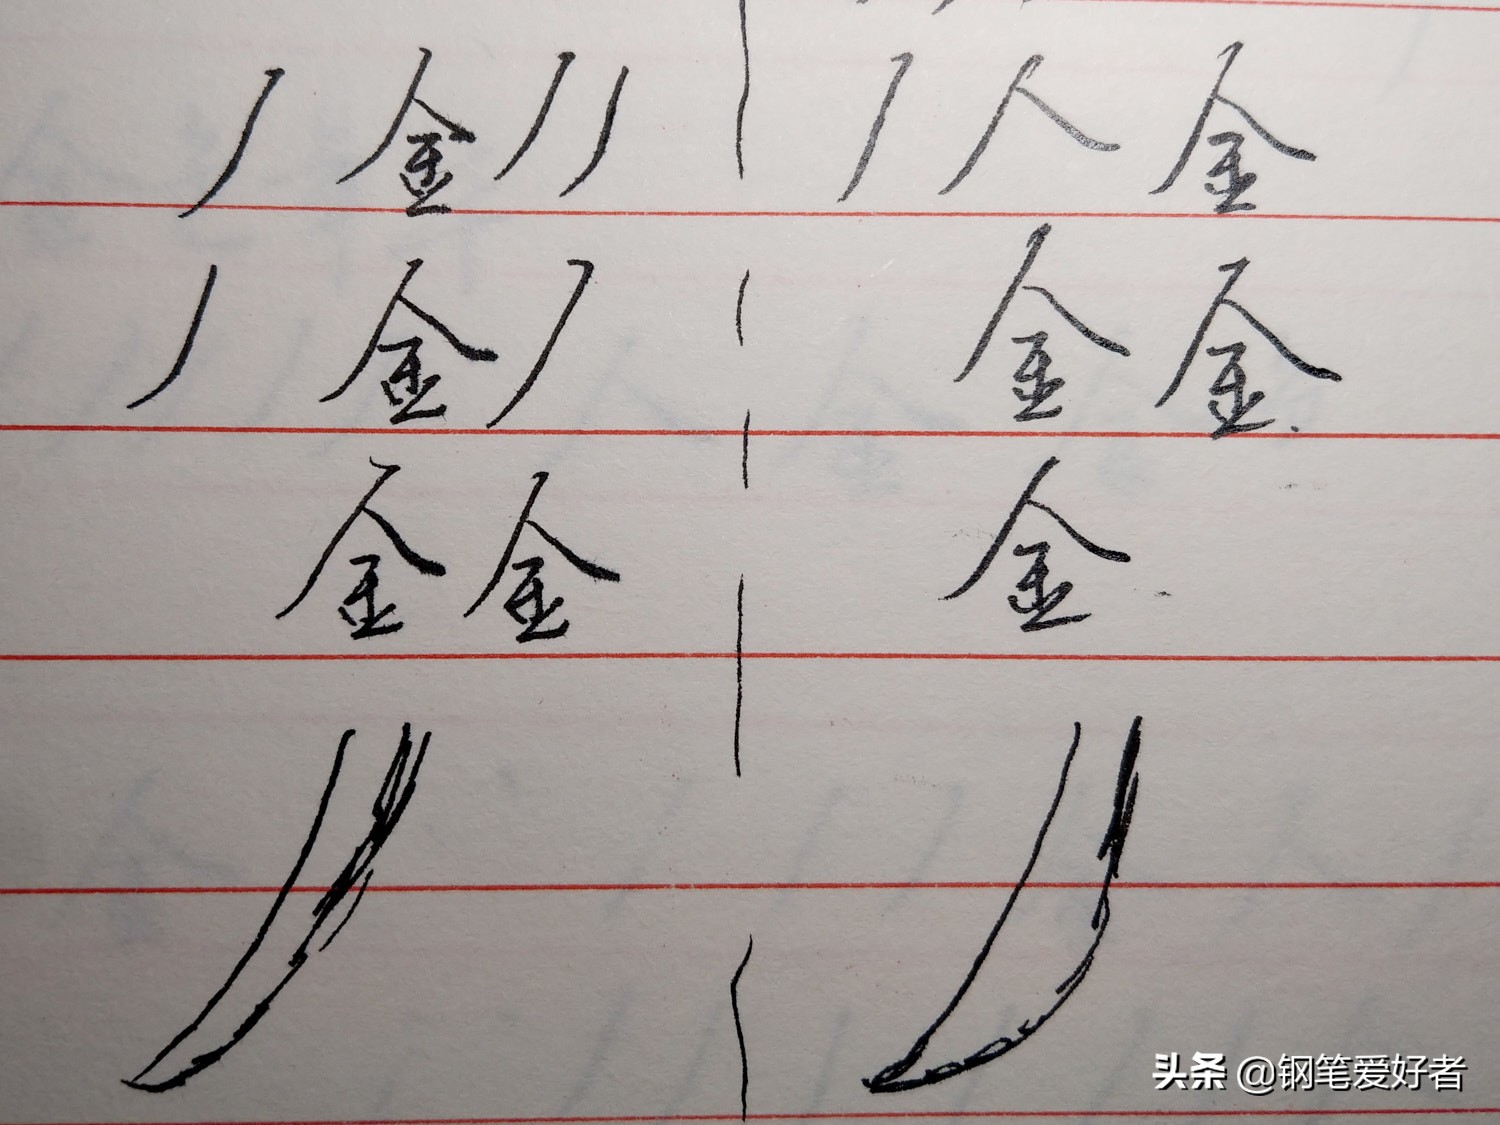 丿 金 丿 丿 丿 人 金
丿 金 丿 金 金
金 金 金
头条 @钢笔爱好者